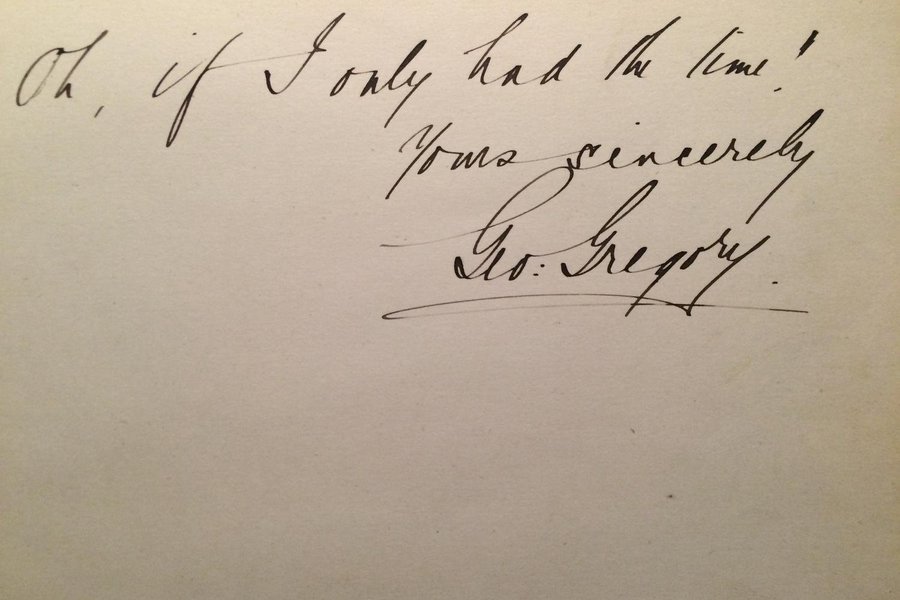 Oh, if I only had the time!
Yours sincerely
Geo: Gregory.